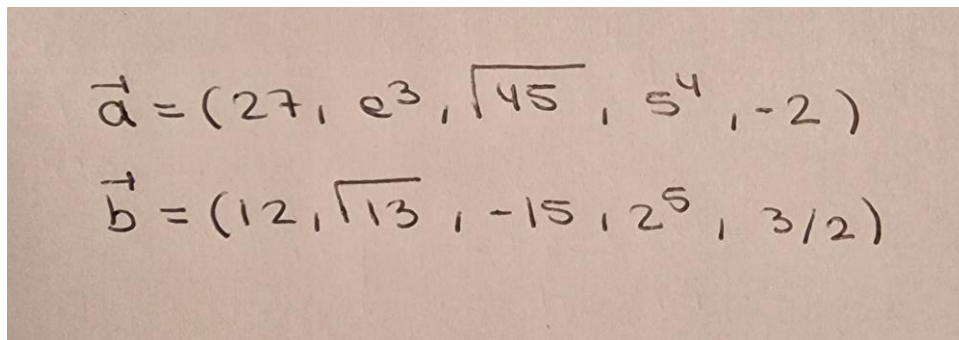 a⃗ = (27, e³, √45, 5⁴, -2)
b⃗ = (12, √13, -15, 2⁵, 3/2)